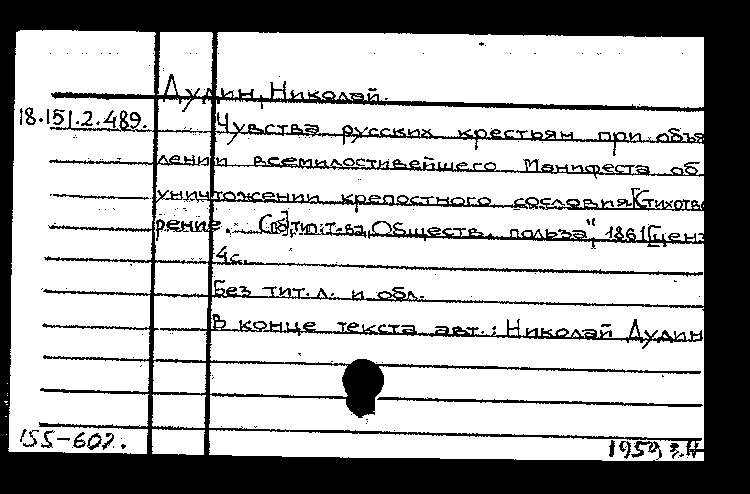 Дудин, Николай.
18.151.2.489. Чувства русских крестьян при объя
лении всемилостивейшего Манифеста об
уничтожении крепостного сословия. [Стихотво
рение. СПб], тип. т-ва „Обществ. польза", 1861 [ценз
4 с.
Без тит. л. и обл.
В конце текста авт.: Николай Дудин
155-607. 1959